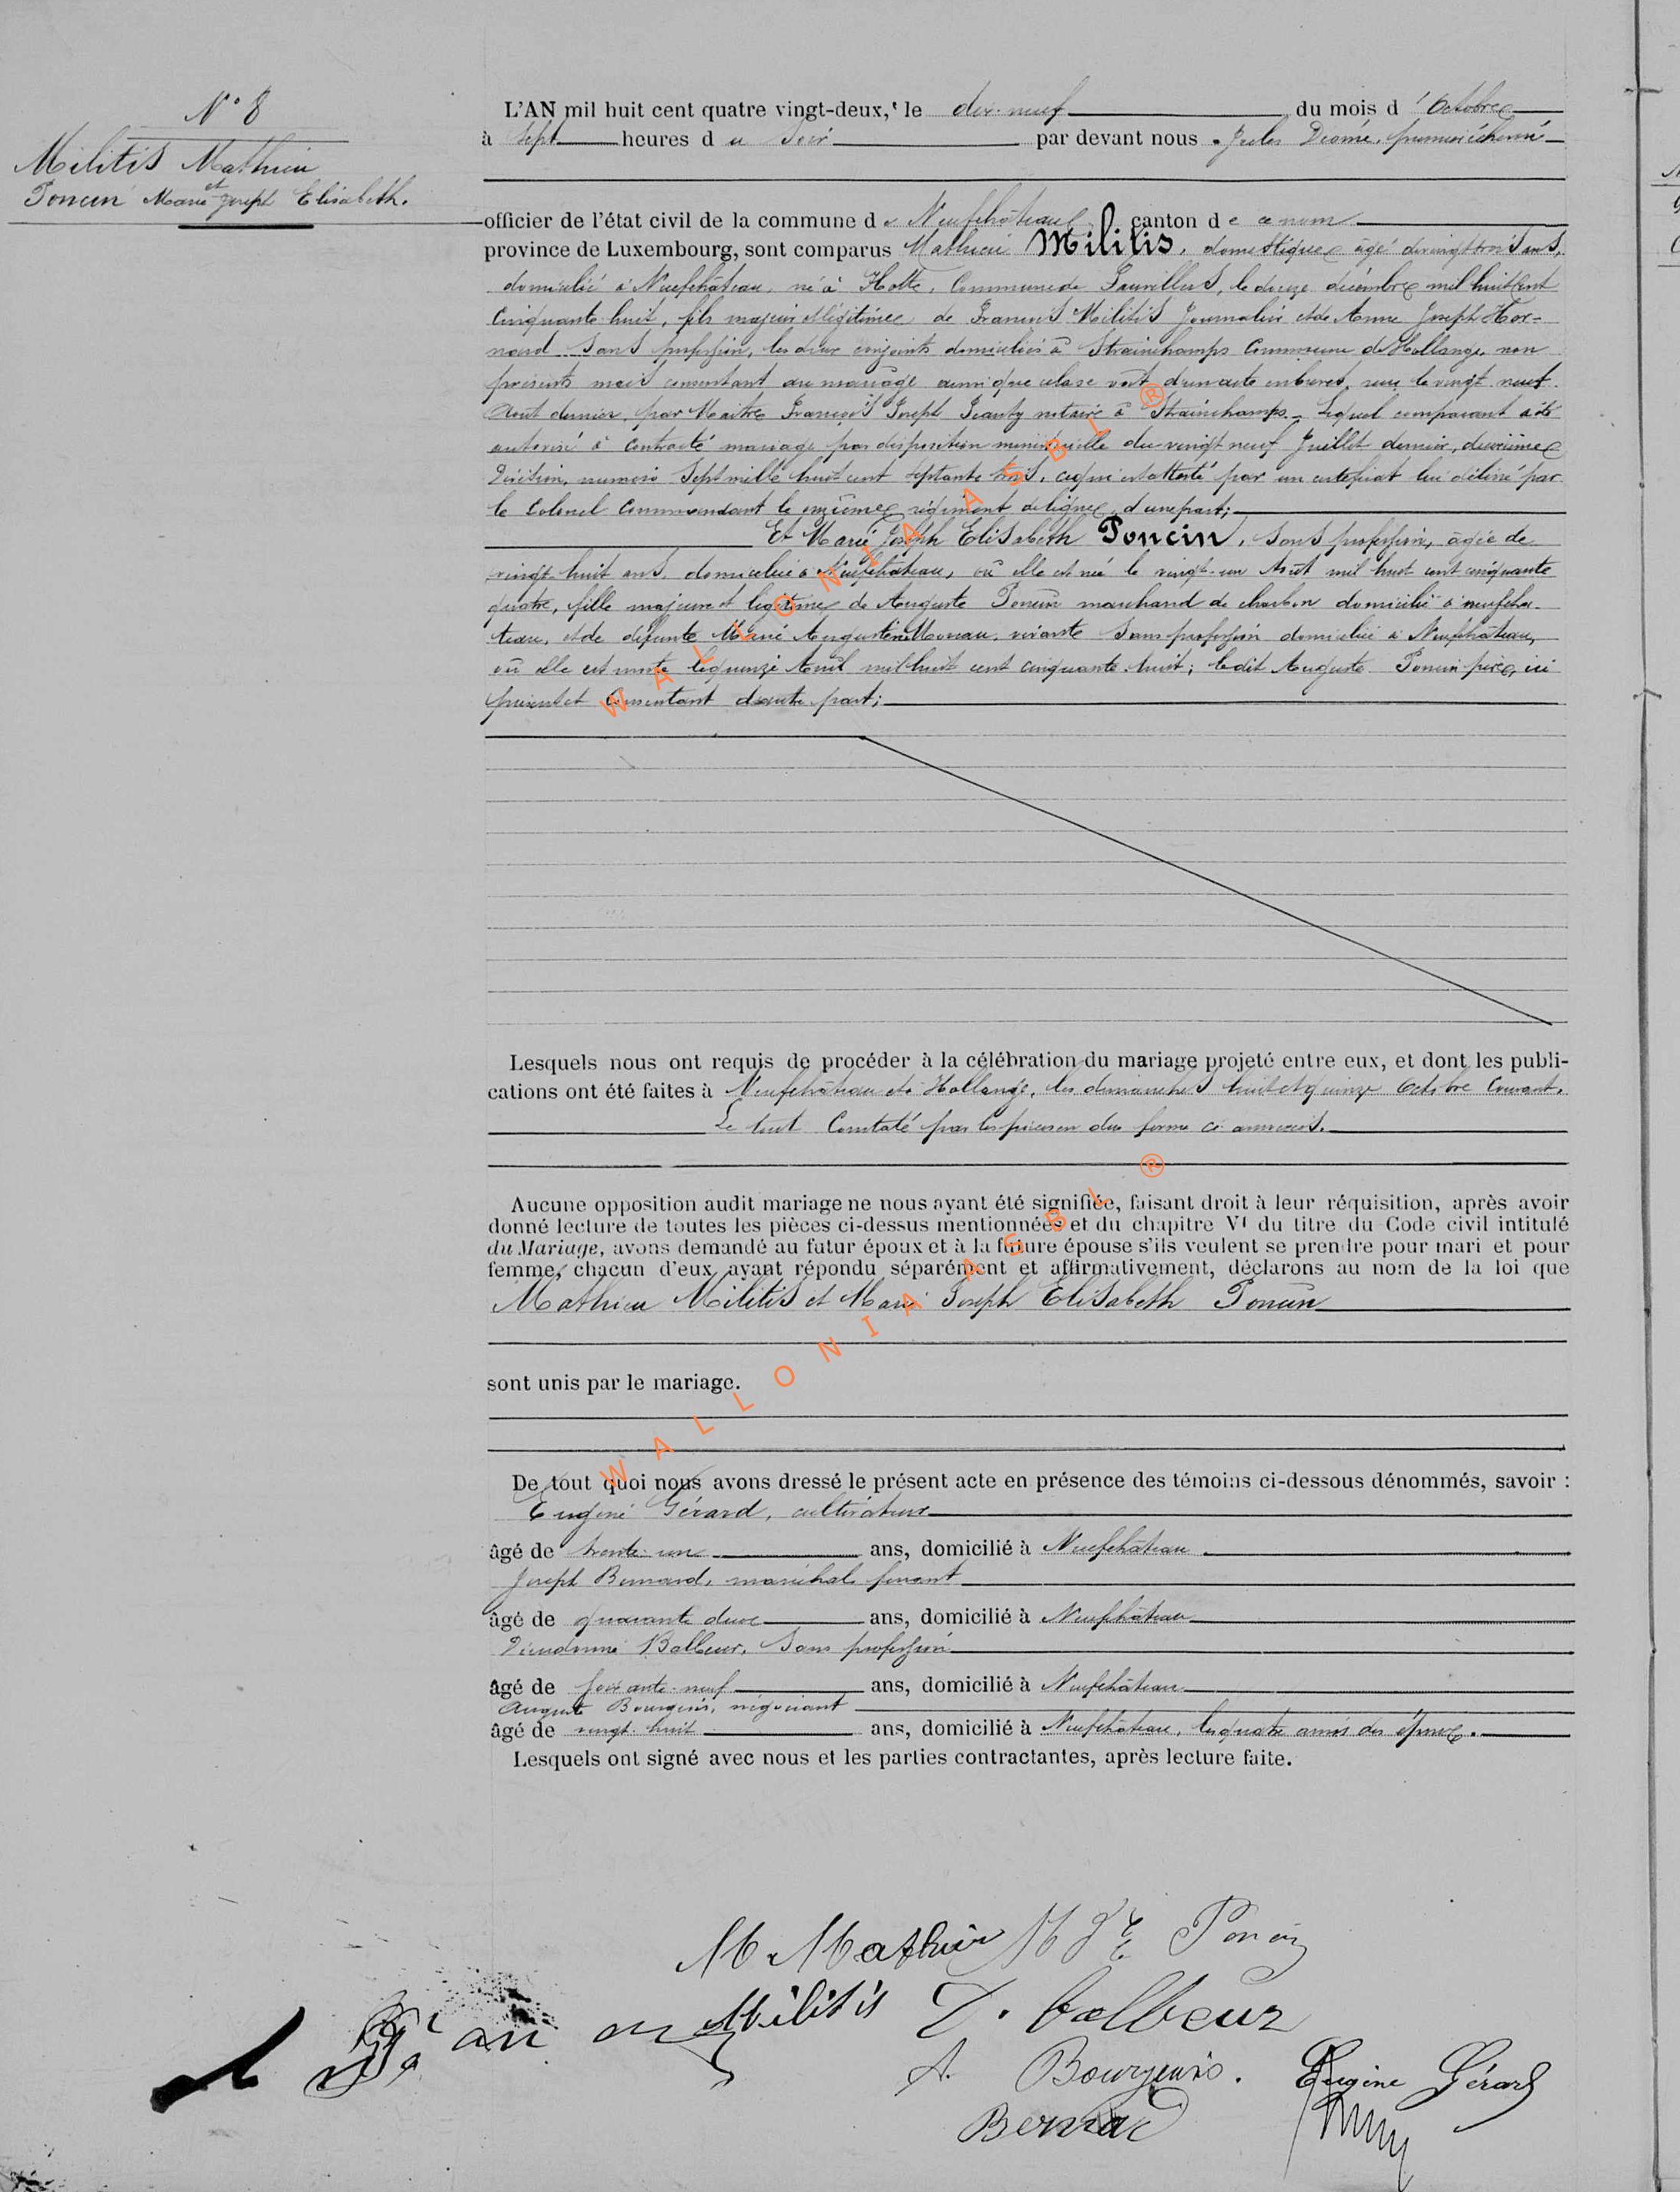 N° 8
Militis Mathieu
et
Poncin Marie Joseph Elisabeth.
L'AN mil huit cent quatre vingt-deux, le dix-neuf du mois d'Octobre
à sept heures du soir par devant nous Jules Dromé, premier échevin
officier de l'état civil de la commune de Neufchâteau, canton de ce nom
province de Luxembourg, sont comparus Mathieu Militis, domestique âgé de vingt trois ans,
domicilié à Neufchâteau, né à Hotte, Commune de Fauvillers, le douze décembre mil huit cent
cinquante huit, fils majeur et légitime de François Militis Journalier et de Anne Joseph Hor-
nard sans profession, les deux conjoints domiciliés à Strainchamps Commune de Hollange, non
présents mais consentant au mariage ainsi que cela se voit d'un acte en brevet, reçu le vingt neuf
Aout dernier, par Maître François Joseph Jeanty notaire à Strainchamps. Lequel comparant a été
autorisé à contracté mariage par disposition ministérielle du vingt neuf Juillet dernier, deuxième
Division, numéro sept mille huit cent septante trois, ce qui est attesté par un certificat lui délivré par
le Colonel Commandant le onzième régiment de ligne, d'une part;
Et Marie Joseph Elisabeth Poncin, sans profession, âgée de
vingt-huit ans, domiciliée à Neufchâteau, où elle est née le vingt-un Août mil huit cent cinquante
quatre, fille majeure et légitime de Auguste Poncin marchand de charbon domicilié à Neufchâ-
teau, et de défunte Marie Augustine Moreau, vivante sans profession domiciliée à Neufchâteau,
où elle est morte le quinze Avril mil huit cent cinquante huit; ledit Auguste Poncin père, ici
présent et consentant d'autre part;
Lesquels nous ont requis de procéder à la célébration du mariage projeté entre eux, et dont les publi-
cations ont été faites à Neufchâteau et à Hollange, les dimanches huit et quinze Octobre Courant.
Le tout Constaté par les pièces en due forme ci annexées.
Aucune opposition audit mariage ne nous ayant été signifiée, faisant droit à leur réquisition, après avoir
donné lecture de toutes les pièces ci-dessus mentionnées et du chapitre VI du titre du Code civil intitulé
du Mariage, avons demandé au futur époux et à la future épouse s'ils veulent se prendre pour mari et pour
femme, chacun d'eux ayant répondu séparément et affirmativement, déclarons au nom de la loi que
Mathieu Militis et Marie Joseph Elisabeth Poncin
sont unis par le mariage.
De tout quoi nous avons dressé le présent acte en présence des témoins ci-dessous dénommés, savoir :
Eugène Gérard, cultivateur
âgé de trente un ans, domicilié à Neufchâteau
Joseph Bernard, maréchal ferrant
âgé de quarante deux ans, domicilié à Neufchâteau
Dieudonné Balbeur, sans profession
âgé de soixante-neuf ans, domicilié à Neufchâteau
Auguste Bourgeois, négociant
âgé de vingt-huit ans, domicilié à Neufchâteau, les quatre amis des époux.
Lesquels ont signé avec nous et les parties contractantes, après lecture faite.
M. Mathieu M J E Poncin
Militis D. balbeur
A. Bourgeois. Eugène Gérard
Bernard
WALLONIA ASBL ®
WALLONIA ASBL ®